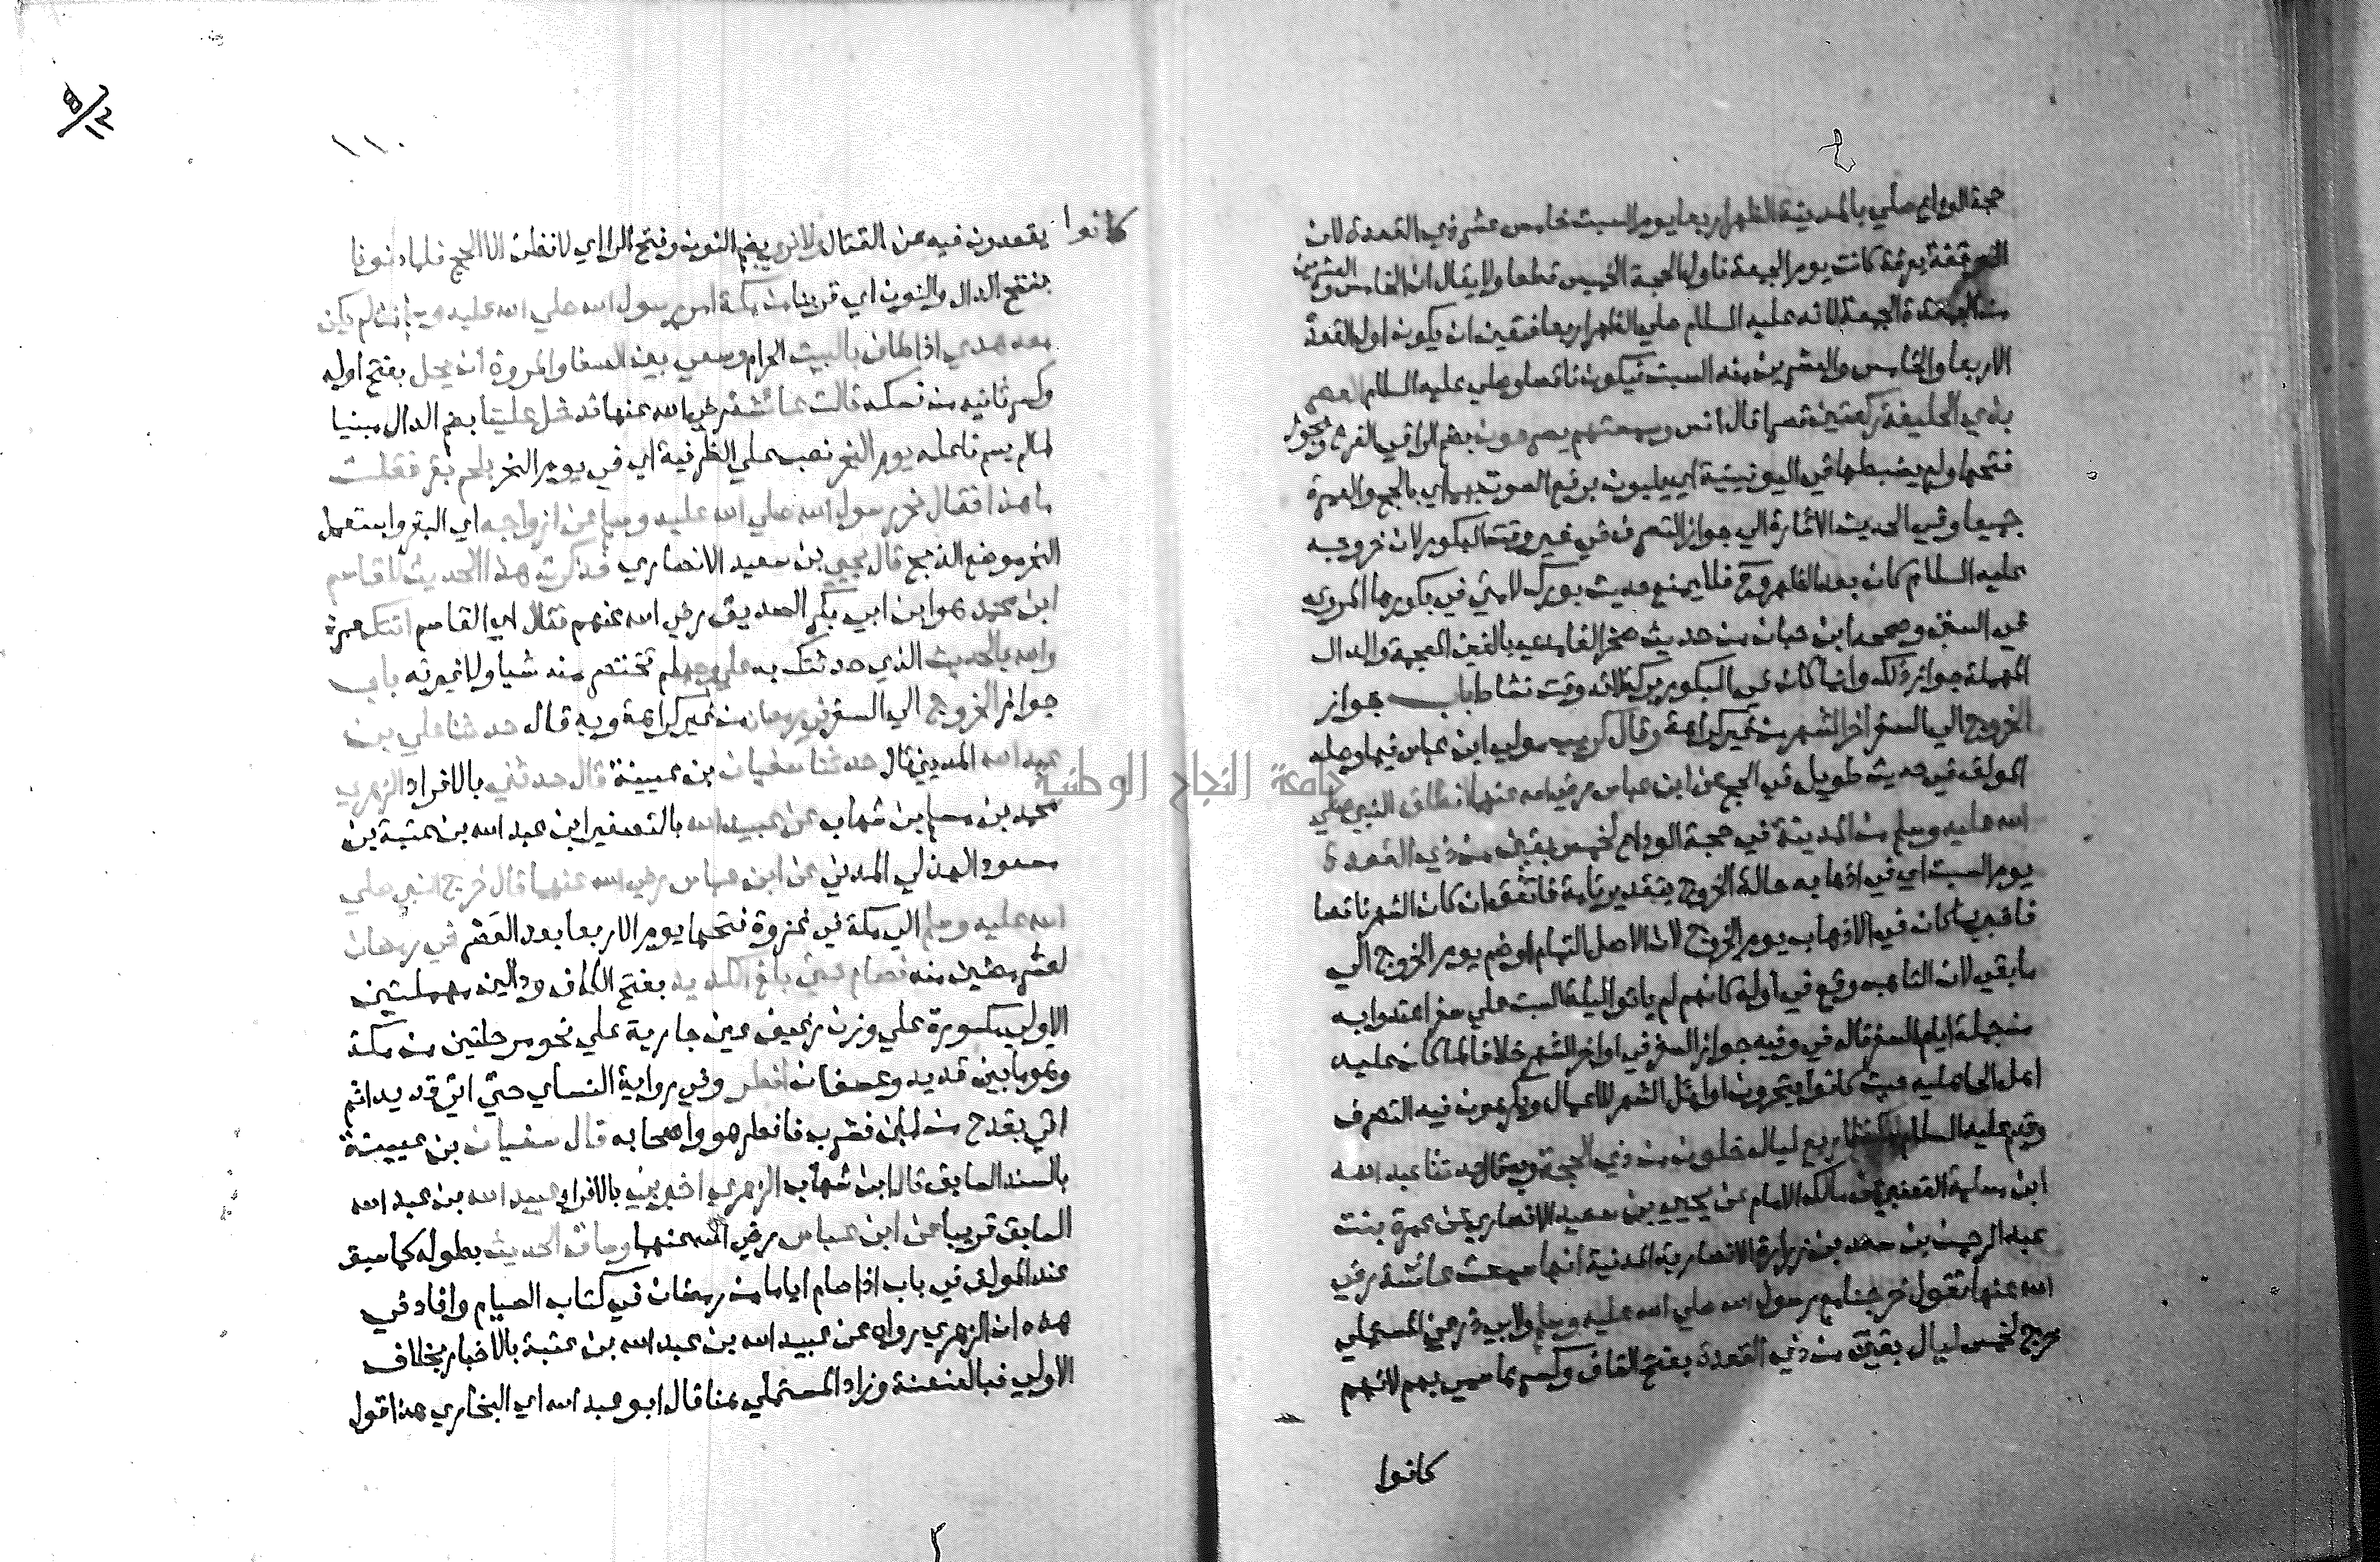 حجة الوداع صلي بالمدينة الظهر اربعا يوم السبت خامس عشري ذي القعدة لان
الوقفة بعرفة كانت يوم الجمعة فاول الحجة الخميس قطعا ولا يقال ان الخامس والعشرين
من القعدة الجمعة لانه عليه السلام صلي الظهر اربعا فتعين ان يكون اول القعدة
الاربعا والخامس والعشرين منه السبت فيكون ناقصا وصلي عليه السلام العصر
بذي الحليفة ركعتين قصرا قال انس وسمعتهم يصرخون بضم الرا في الفرع ويجوز
فتحها ولم يضبطها في اليونينية اي يلبون برفع الصوت بهما اي بالحج والعمرة
جميعا وفي الحديث الاشارة الي جواز التصرف في غير وقت البكور لان خروجه
عليه السلام كان بعد الظهر وح فلا يمنع حديث بورك لامتي في بكورها المروي
في السنن وصححه ابن حبان من حديث صخر الغامدي بالغين المعجمة والدال
المهملة جواز ذلك وانما كان في البكور بركة لانه وقت نشاط باب جواز
الخروج الي السفر اخر الشهر من غير كراهة وقال كريب مولي ابن عباس فيما وصله
المولف في حديث طويل في الحج عن ابن عباس رضي الله عنهما انطلق النبي صلي
الله عليه وسلم من المدينة في حجة الوداع لخمس بقين من ذي القعدة
يوم السبت اي في اذهابه حالة الخروج بتقدير تمامه فاتفق ان كان الشهر ناقصا
فاخبر بما كان في الاذهاب يوم الخروج لان الاصل التمام او ضم يوم الخروج الي
ما بقي لان التاهب وقع في اوله كانهم لم باتوا ليلة السبت علي سفر اعتدوا به
من جملة ايام السفر قاله في وفيه جواز السفر في اواخر الشهر خلافا لما كان عليه
اهل الجاهلية حيث كانوا يتحرون اوائل الشهر للاعمال ويكرهون فيه التصرف
وقدم عليه السلام مكة لاربع ليال خلون من ذي الحجة وبه قال حدثنا عبد الله
ابن مسلمة القعنبي عن مالك الامام عن يحيي بن سعيد الانصاري عن عمرة بنت
عبد الرحمن بن سعد بن زرارة الانصارية المدنية انها سمعت عائشة رضي
الله عنها تقول خرجنا مع رسول الله صلي الله عليه وسلم ولابي ذر عن المستملي
خرج لخمس ليال بقين من ذي القعدة بفتح القاف وكسرها سمي بهم لانهم
كانوا
١١٠
كانوا يقعدون فيه عن القتال ولا نري بضم النون وفتح الرا اي لا نظن الا الحج فلما دنونا
بفتح الدال والنون اي قربنا من مكة امر رسول الله صلي الله عليه وسلم من لم يكن
معه هدي اذا طاف بالبيت الحرام وسعي بين الصفا والمروة أن يحل بفتح اوله
وكسر ثانيه من نسكه قالت عائشة رضي الله عنها فدخل علينا بضم الدال مبنيا
لما لم يسم فاعله يوم النحر نصب علي الظرفية اي في يوم النحر بلحم بقر فقلت
ما هذا فقال نحر رسول الله صلي الله عليه وسلم عن ازواجه اي البقر واستعمل
النحر موضع الذبح قال يحيي بن سعيد الانصاري فذكرت هذا الحديث للقاسم
ابن محمد هو ابن ابي بكر الصديق رضي الله عنهم فقال اي القاسم اتتك عمرة
والله بالحديث الذي حدثتك به علي وجهه لم تختصر منه شيا ولا غيرته باب
جواز الخروج الي السفر في رمضان من غير كراهة وبه قال حدثنا علي بن
عبد الله المديني قال حدثنا سفيان بن عيينة قال حدثني بالافراد الزهري
محمد بن مسلم بن شهاب عن عبيد الله بالتصغير ابن عبد الله بن عتبة بن
مسعود الهذلي المدني عن ابن عباس رضي الله عنهما قال خرج النبي صلي
الله عليه وسلم الي مكة في غزوة فتحها يوم الاربعا بعد العصر في رمضان
لعشر مضين منه فصام حتي بلغ الكديد بفتح الكاف ودالين مهملتين
الاولي مكسورة علي وزن رغيف عين جارية علي نحو مرحلتين من مكة
وهو ما بين قديد وعسفان افطر وفي رواية النساي حتي اتي قديد اثم
اتي بقدح من لبن فشرب فافطر هو واصحابه قال سفيان بن عيينة
بالسند السابق قال ابن شهاب الزهري اخبرني بالافراد عبيد الله بن عبد الله
السابق قريبا عن ابن عباس رضي الله عنهما وساق الحديث بطوله كما سبق
عند المولف في باب اذا صام اياما من رمضان في كتاب الصيام وافاد في
هذه ان الزهري رواه عن عبيد الله بن عبد الله بن عتبة بالاخبار بخلاف
الاولي فبالعنعنة وزاد المستملي هنا قال ابو عبد الله اي البخاري هذا قول
جامعة النجاح الوطنية